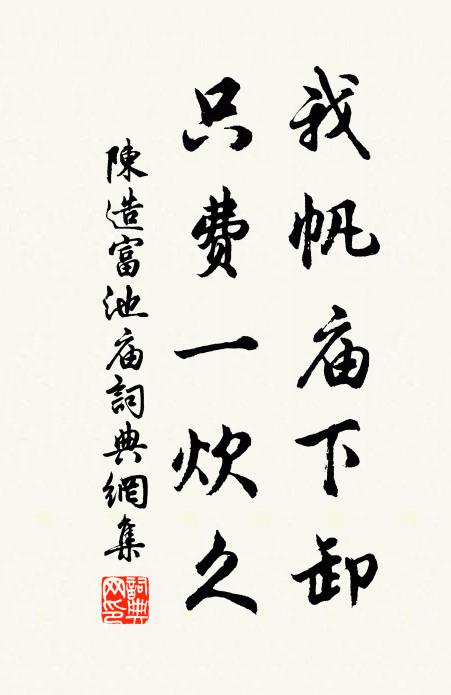 我帆庙下卸
只费一炊久
陳造富池庙詞典網集
詞典网印